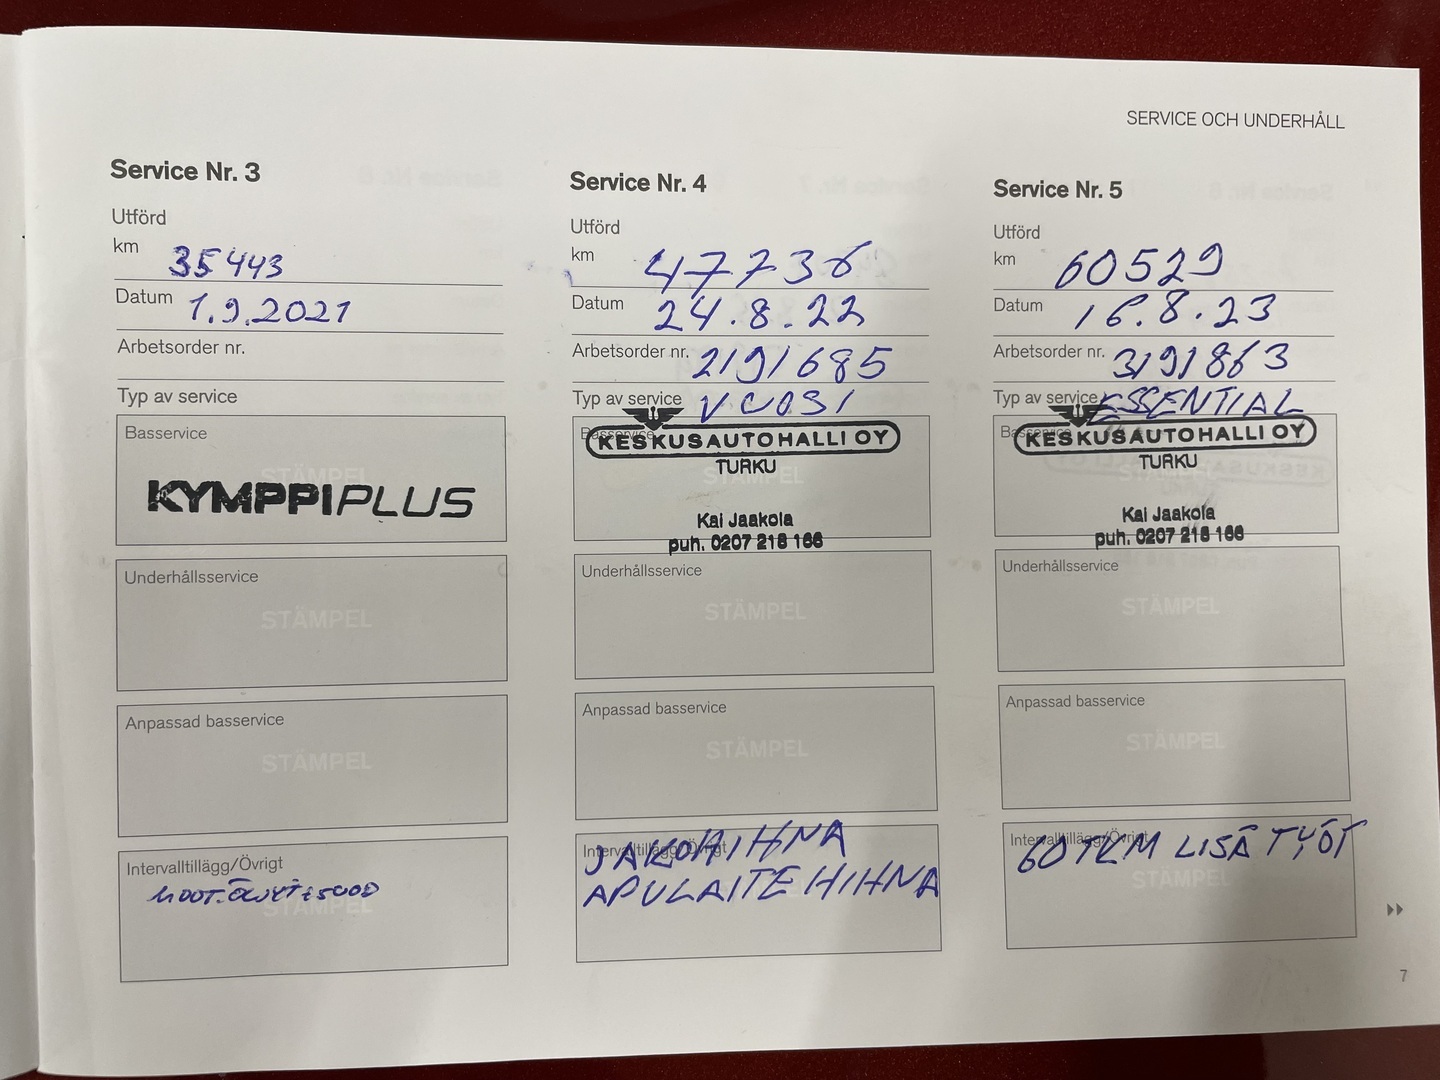 SERVICE OCH UNDERHÅLL
Service Nr. 3
Utförd
km 35443
Datum 1.9.2021
Arbetsorder nr.
Typ av service
Basservice
STÄMPEL
KYMPPIPLUS
Underhållsservice
STÄMPEL
Anpassad basservice
STÄMPEL
Intervalltillägg/Övrigt
STÄMPEL
Service Nr. 4
Utförd
km 47736
Datum 24.8.22
Arbetsorder nr. 2191685
Typ av service VUOSI
Basservice
KESKUSAUTOHALLI OY
TURKU
STÄMPEL
Kai Jaakola
puh. 0207 218 166
Underhållsservice
STÄMPEL
Anpassad basservice
STÄMPEL
Intervalltillägg/Övrigt
JAKOHIHNA
APULAITEHIHNA
Service Nr. 5
Utförd
km 60529
Datum 16.8.23
Arbetsorder nr. 3191863
Typ av service ESSENTIAL
KESKUSAUTOHALLI OY
TURKU
Kai Jaakola
puh. 0207 218 166
Underhållsservice
STÄMPEL
Anpassad basservice
STÄMPEL
Intervalltillägg/Övrigt
60TKM LISÄTYÖT
STÄMPEL
7